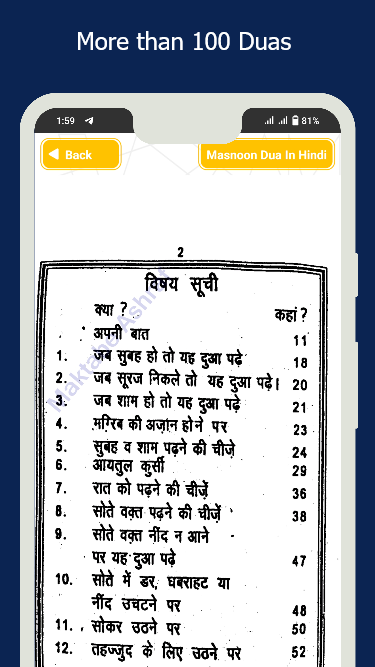 More than 100 Duas
1:59 81%
Back Masnoon Dua In Hindi
2
विषय सूची
क्या ? कहां ?
अपनी बात 11
1. जब सुबह हो तो यह दुआ पढ़े 18
2. जब सूरज निकले तो यह दुआ पढ़े। 20
3. जब शाम हो तो यह दुआ पढ़े 21
4. मग़्रिब की अज़ान होने पर 23
5. सुबह व शाम पढ़ने की चीज़े 24
6. आयतुल कुर्सी 29
7. रात को पढ़ने की चीज़ें 36
8. सोते वक़्त पढ़ने की चीज़ें 38
9. सोते वक़्त नींद न आने
पर यह दुआ पढ़े 47
10. सोते में डर, घबराहट या
नींद उचटने पर 48
11. सोकर उठने पर 50
12. तहज्जुद के लिए उठने पर 52